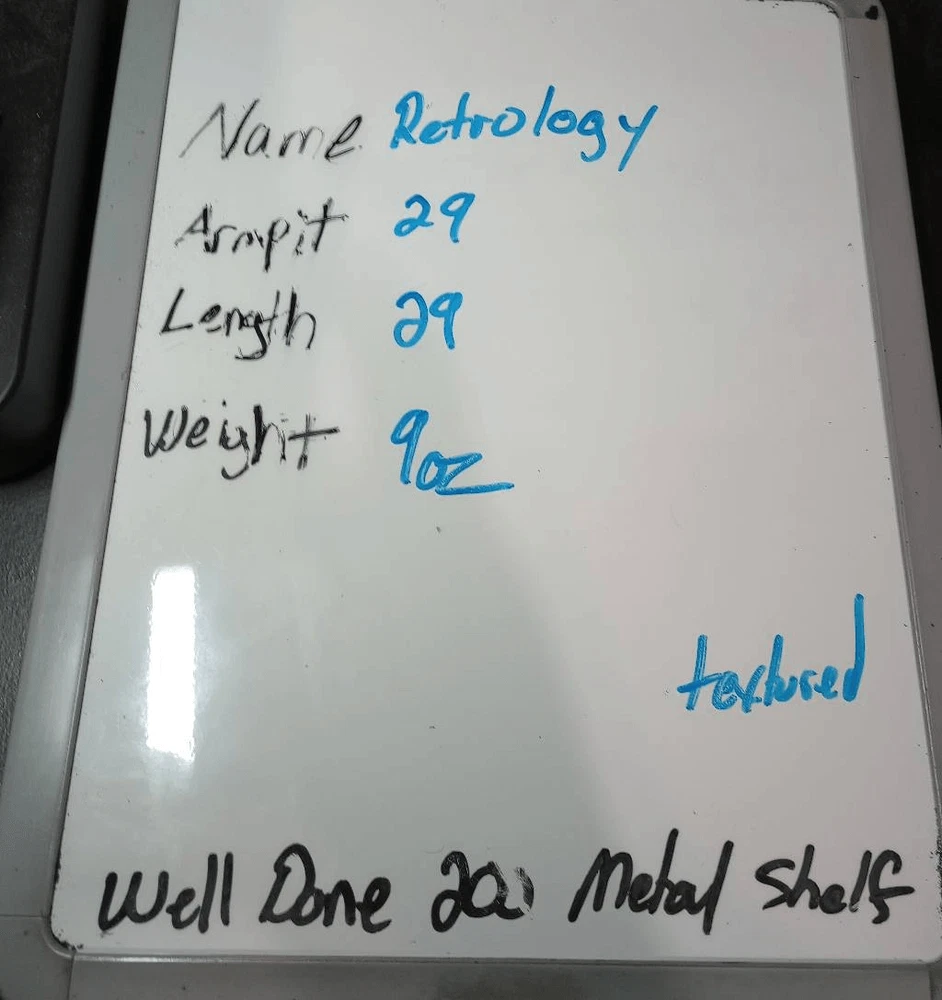 Name Retrology
Armpit 29
Length 29
Weight 9oz
textured
Well Done Metal Shelf